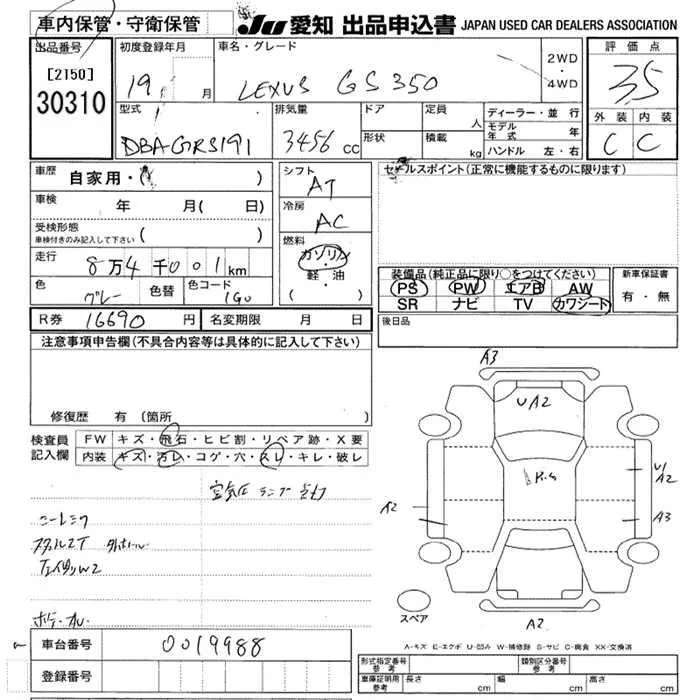 車内保管・守衛保管
JU 愛知 出品申込書 JAPAN USED CAR DEALERS ASSOCIATION
出品番号
[2150]
30310
初度登録年月
19 月
車名・グレード
LEXUS GS350
2WD
・
4WD
評価点
3.5
外装 内装
C C
型式
DBA-GRS191
排気量
3456 cc
ドア
形状
定員 人
積載 kg
ディーラー・並行
モデル年式 年
ハンドル 左・右
車歴
自家用・( )
車検 年 月( 日)
受検形態
車検付きのみ記入して下さい ( )
走行
8万4千001km
色
グレー
色替
色コード
1G0
シフト
AT
冷房
AC
燃料
ガソリン
・
軽・油
( )
セールスポイント(正常に機能するものに限ります)
装備品(純正品に限り○をつけてください)
PS PW エアB AW
SR ナビ TV カワシート
新車保証書
有・無
R券 16690 円
名変期限 月 日
後日品
注意事項申告欄(不具合内容等は具体的に記入して下さい)
修復歴 有(箇所 )
検査員
記入欄
FW キズ・飛石・ヒビ割・リペア跡・X要
内装 キズ・汚レ・コゲ・穴・スレ・キレ・破レ
空気圧ランプ点灯
A3
UA2
R.S
U1
A2
A2
A3
A2
スペア
A-キズ E-エクボ U-凹み W-補修跡 S-サビ C-腐食 XX-交換済
車台番号 0019988
登録番号
形式指定番号
参考
類別区分番号
参考
車庫証明用
参考
長さ cm
幅 cm
高さ cm